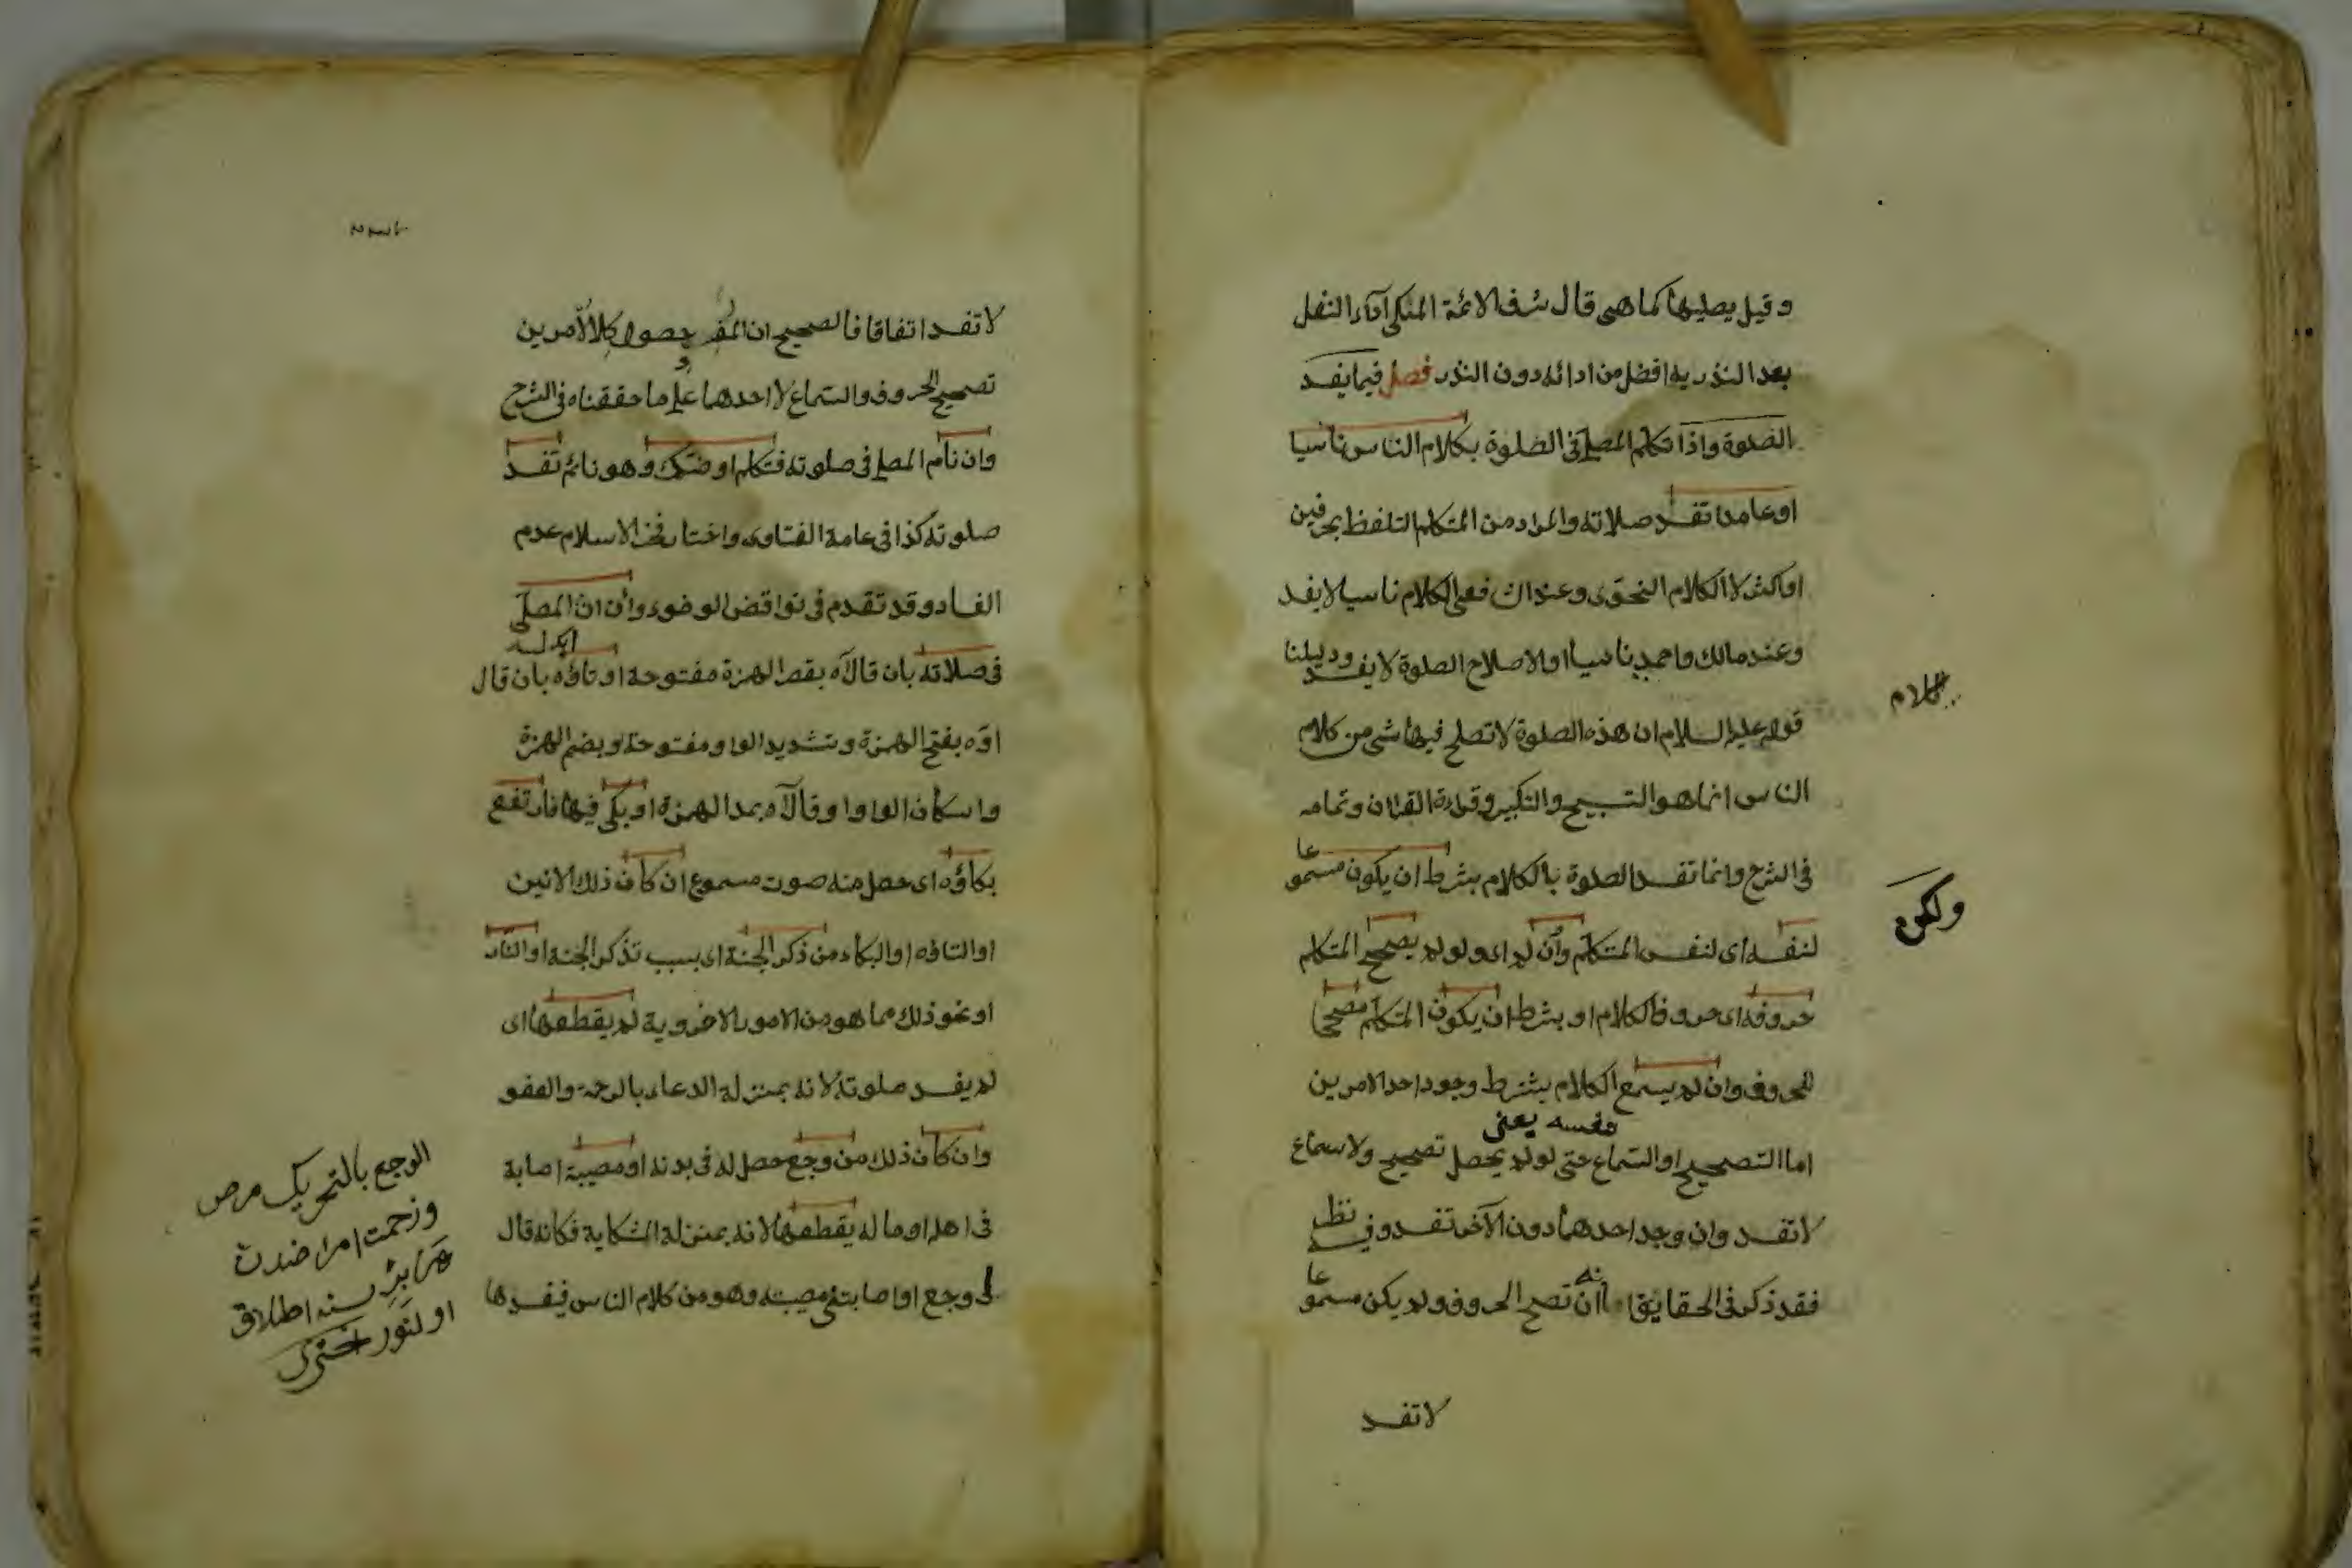 وقيل يصليها كما هى قال شرف الائمة المكى اداء النفل
بعد النذر به افضل من ادائه دون النذر فصل فيما يفسد
الصلوة واذا تكلم المصلى فى الصلوة بكلام الناس ناسيا
او عامدا تفسد صلاته والمراد من التكلم التلفظ بحرفين
او اكثر لا الكلام النحوى وعند الشافعى الكلام ناسيا لا يفسد
وعند مالك واحمد ناسيا او لاصلاح الصلوة لا يفسد ودليلنا
قوله عليه السلام ان هذه الصلوة لا تصلح فيها شىء من كلام
الناس انما هو التسبيح والتكبير وقراءة القران وتمامه
فى الشرح وانما تفسد الصلوة بالكلام بشرط ان يكون مسموعا
لنفسه اى لنفس المتكلم وان لم اى ولو لم يصحح المتكلم
حروفه اى حروف الكلام او بشرط ان يكون المتكلم مصححا
للحروف وان لم يسمع الكلام يشترط وجود احد الامرين
نفسه يعنى
اما التصحيح او السماع حتى لو لم يحصل تصحيح ولا سماع
لا تفسد وان وجد احدهما دون الآخر تفسد وفيه نظر
فقد ذكر فى الحقايق انه ان تصح الحروف ولم يكن مسموعا
لا تفسد
كلام
ولكن
لا تفسد اتفاقا فالصحيح ان المفسد حصول كلا الامرين
تصحيح الحروف والسماع لا احدهما على ما حققناه فى الشرح
وان نام المصلى فى صلوته فتكلم او ضحك وهو نائم تفسد
صلوته كذا فى عامة الفتاوى واختار فخر الاسلام عدم
الفساد وقد تقدم فى نواقض الوضوء وان ان المصلى
فى صلاته بان قال آه بقصر الهمزة مفتوحة او تاؤه بان قال
اوه بفتح الهمزة وتشديد الواو مفتوحة وبضم الهمزة
واسكان الواو او قال آه بمد الهمزة او بكى فيها فارتفع
بكاؤه اى حصل منه صوت مسموع ان كان ذلك الانين
او التاؤه او البكاء من ذكر الجنة اى بسبب تذكر الجنة او النار
او نحو ذلك مما هو من الامور الاخروية لم يقطعها اى
لم يفسد صلوته لانه بمنزلة الدعاء بالرحمة والعفو
وان كان ذلك من وجع حصل له فى بدنه او مصيبة اصابة
فى اهله او ماله يقطعها لانه بمنزلة الشكاية فكانه قال
لى وجع او اصابتنى مصيبة وهو من كلام الناس فيفسدها
الوجع بالتحريك مرض
وزحمت امراضدن
هر برينه اطلاق
اولنور اخترى